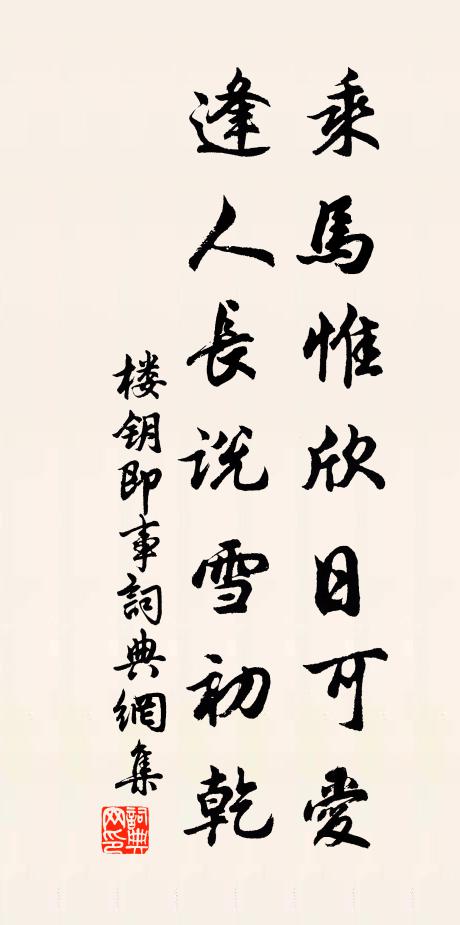 乘馬惟欣日可愛
逢人長説雪初乾
楼钥即事詞典網集
詞典网印